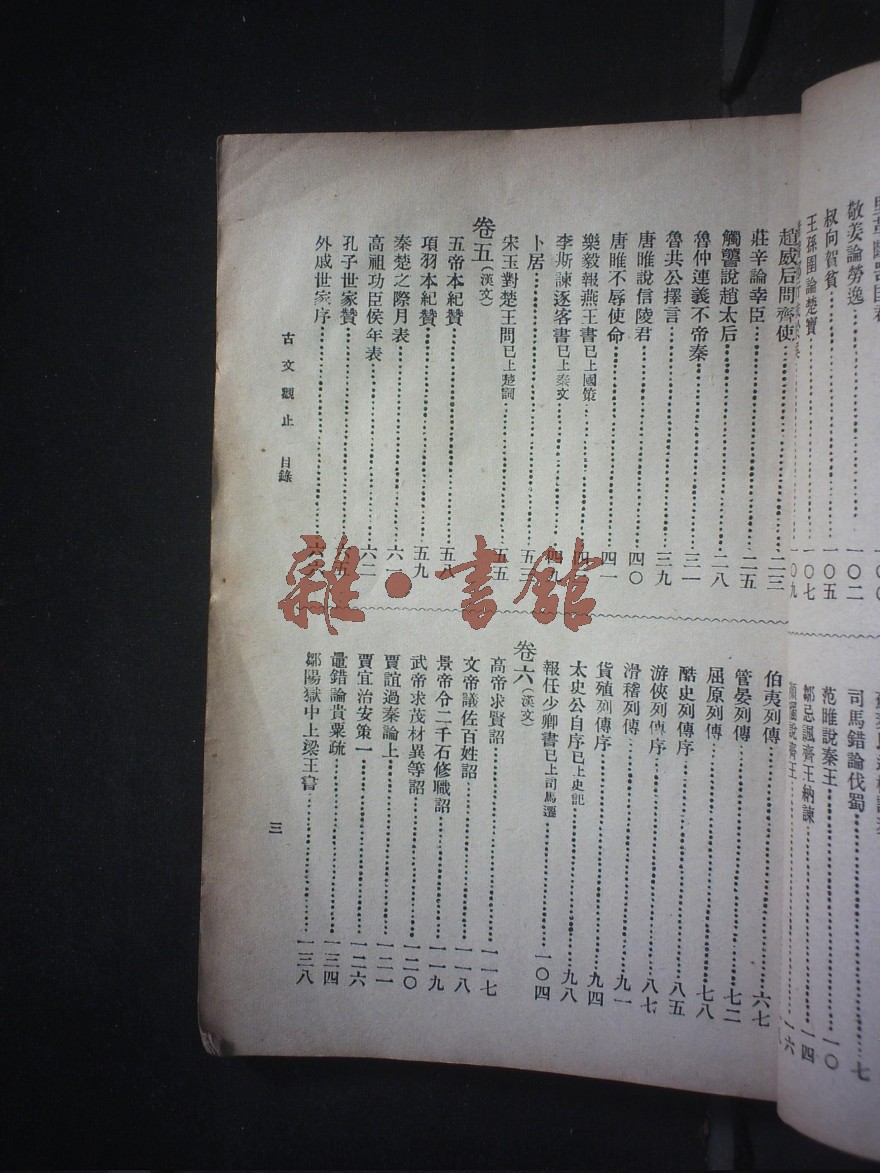 敬姜論勞逸……一〇二
叔向賀貧……一〇五
王孫圉論楚寶……一〇七
司馬錯論伐蜀……七
范睢說秦王……一〇
鄒忌諷齊王納諫……一四
顏斶說齊王……一六
趙威后問齊使……二三
莊辛論幸臣……二五
觸讋說趙太后……二八
魯仲連義不帝秦……三一
魯共公擇言……三九
唐睢說信陵君……四〇
唐睢不辱使命……四一
樂毅報燕王書已上國策……四二
李斯諫逐客書已上秦文……四九
卜居……五三
宋玉對楚王問已上楚詞……五五
卷五(漢文)
五帝本紀贊……五八
項羽本紀贊……五九
秦楚之際月表……六一
高祖功臣侯年表……六二
孔子世家贊……六五
外戚世家序……六六
伯夷列傳……六七
管晏列傳……七二
屈原列傳……七八
酷史列傳序……八五
游俠列傳序……八七
滑稽列傳……九一
貨殖列傳序……九四
太史公自序已上史記……九八
報任少卿書已上司馬遷……一〇四
卷六(漢文)
高帝求賢詔……一一七
文帝議佐百姓詔……一一八
景帝令二千石修職詔……一一九
武帝求茂材異等詔……一二〇
賈誼過秦論上……一二一
賈宜治安策一……一二六
鼂錯論貴粟疏……一三四
鄒陽獄中上梁王書……一三八
古文觀止 目錄
三
雜·書館